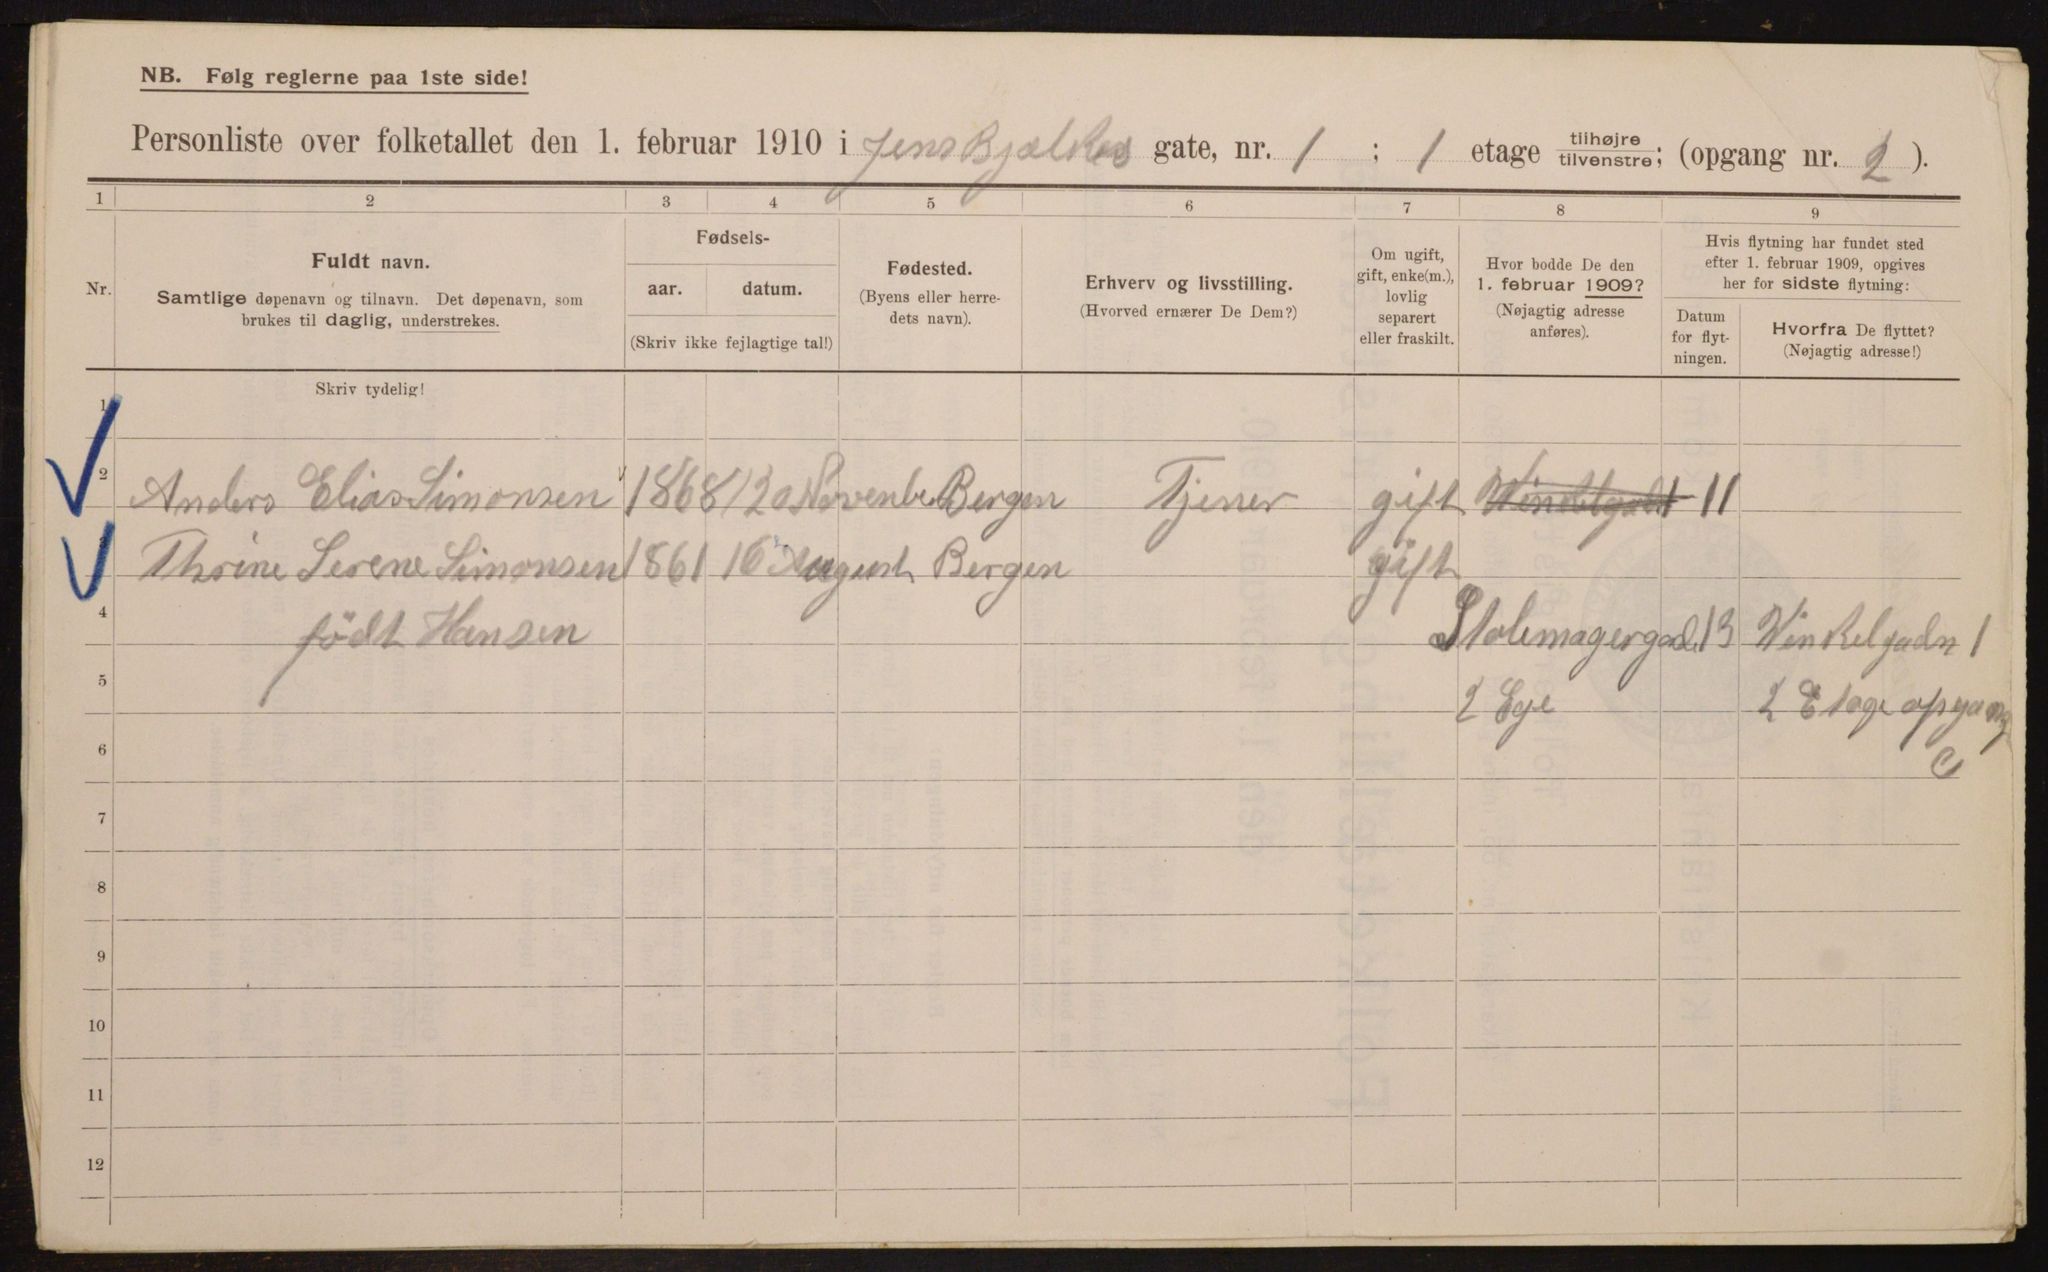 NB. Følg reglerne paa 1ste side!
Personliste over folketallet den 1. februar 1910 i Jens Bjælkes gate, nr. 1 ; 1 etage tilhøjre/tilvenstre; (opgang nr. 2 ).
1 2 3 4 5 6 7 8 9
Nr.
Fuldt navn.
Samtlige døpenavn og tilnavn. Det døpenavn, som
brukes til daglig, understrekes.
Skriv tydelig!
Fødsels-
aar. datum.
(Skriv ikke fejlagtige tal!)
Fødested.
(Byens eller herre-
dets navn).
Erhverv og livsstilling.
(Hvorved ernærer De Dem?)
Om ugift,
gift, enke(m.),
lovlig
separert
eller fraskilt.
Hvor bodde De den
1. februar 1909?
(Nøjagtig adresse
anføres).
Hvis flytning har fundet sted
efter 1. februar 1909, opgives
her for sidste flytning:
Datum
for flyt-
ningen.
Hvorfra De flyttet?
(Nøjagtig adresse!)
1
2 Anders Elias Simonsen 1868 20 Bergen Tjener gift 11
3 Thrine Serene Simonsen 1861 16 August Bergen gift
4 født Hansen Stolemagergade 13 Vinkelgadn 1
5 2 Ege 2 Etage opgang
6 C
7
8
9
10
11
12